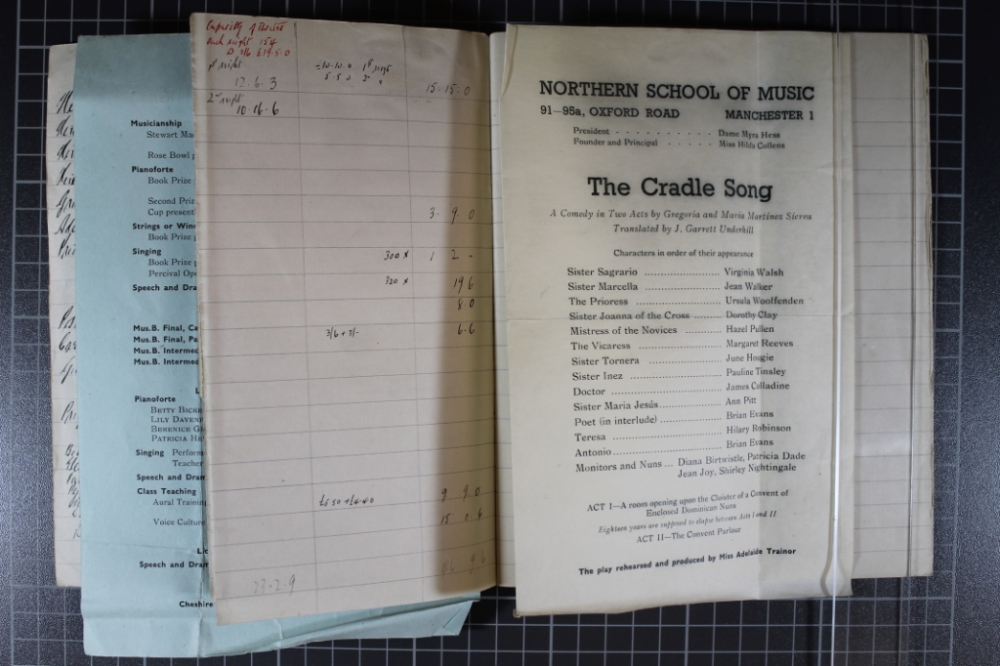 Musicianship
Stewart Ma
Rose Bowl p
Pianoforte
Book Prize
Second Priz
Cup present
Strings or Wind
Book Prize p
Singing
Book Prize p
Percival Ope
Speech and Dra
Mus.B. Final, Ca
Mus.B. Final, Pa
Mus.B. Intermed
Mus.B. Intermed
Pianoforte
BETTY BICK
LILY DAVEN
BERENICE G
PATRICIA HA
Singing Perform
Teacher
Speech and Dram
Class Teaching
Aural Trainin
Voice Culture
Speech and Dram
Cheshire
Capacity of theatre
each night 154
1st night
12.6.3
2nd night
10.16.6
=10.10.0 1st night
5.5.0 2nd "
15.15.0
3. 9 0
300 x 1 2 -
320 x 19 6
8.0
3/6 + 2/- 6.6
9 9.0
15 0 6
23-2-9
NORTHERN SCHOOL OF MUSIC
91—95a, OXFORD ROAD MANCHESTER 1
President - - - - - - - - - - Dame Myra Hess
Founder and Principal - - - - - Miss Hilda Collens
The Cradle Song
A Comedy in Two Acts by Gregoria and Maria Martinez Sierra
Translated by J. Garrett Underhill
Characters in order of their appearance
Sister Sagrario .................... Virginia Walsh
Sister Marcella .................... Jean Walker
The Prioress .................... Ursula Woolfenden
Sister Joanna of the Cross ......... Dorothy Clay
Mistress of the Novices .......... Hazel Pullen
The Vicaress .................... Margaret Reeves
Sister Tornera .................... June Hougie
Sister Inez .................... Pauline Tinsley
Doctor .................... James Colladine
Sister Maria Jesús.................... Ann Pitt
Poet (in interlude) .................... Brian Evans
Teresa .................... Hilary Robinson
Antonio.................... Brian Evans
Monitors and Nuns ... Diana Birtwistle, Patricia Dade
Jean Joy, Shirley Nightingale
ACT I—A room opening upon the Cloister of a Convent of
Enclosed Dominican Nuns
Eighteen years are supposed to elapse between Acts I and II
ACT II—The Convent Parlour
The play rehearsed and produced by Miss Adelaide Trainor